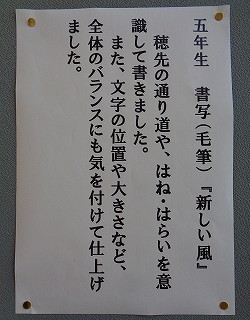 五年生　書写（毛筆）『新しい風』
　穂先の通り道や、はね・はらいを意
識して書きました。
　また、文字の位置や大きさなど、
全体のバランスにも気を付けて仕上げ
ました。